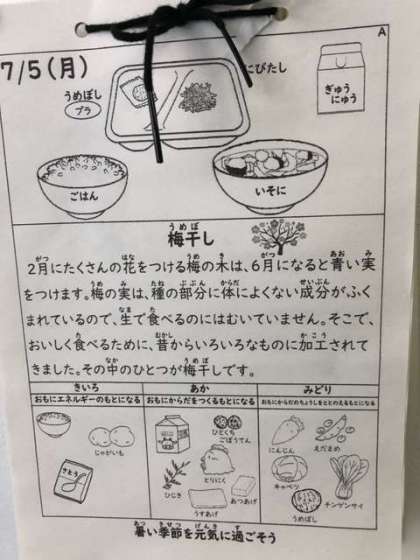 A
7/5(月)
うめぼし
プラ
にびたし
ぎゅう
にゅう
ごはん
いそに
うめぼ
梅干し
がつ はな うめ き がつ あお み
2月にたくさんの花をつける梅の木は、6月になると青い実
うめ み たね ぶぶん からだ せいぶん
をつけます。梅の実は、種の部分に体によくない成分がふく
なま た
まれているので、生で食べるのにはむいていません。そこで、
た むかし かこう
おいしく食べるために、昔からいろいろなものに加工されて
なか うめぼ
きました。その中のひとつが梅干しです。
きいろ
おもにエネルギーのもとになる
じゃがいも
さとう
あか
おもにからだをつくるもとになる
ひとくち
ごぼうてん
とりにく
ひじき
あつあげ
うすあげ
みどり
おもにからだのちょうしをととのえるもとになる
にんじん
えだまめ
キャベツ
チンゲンサイ
うめぼし
あつ きせつ げんき す
暑い季節を元気に過ごそう